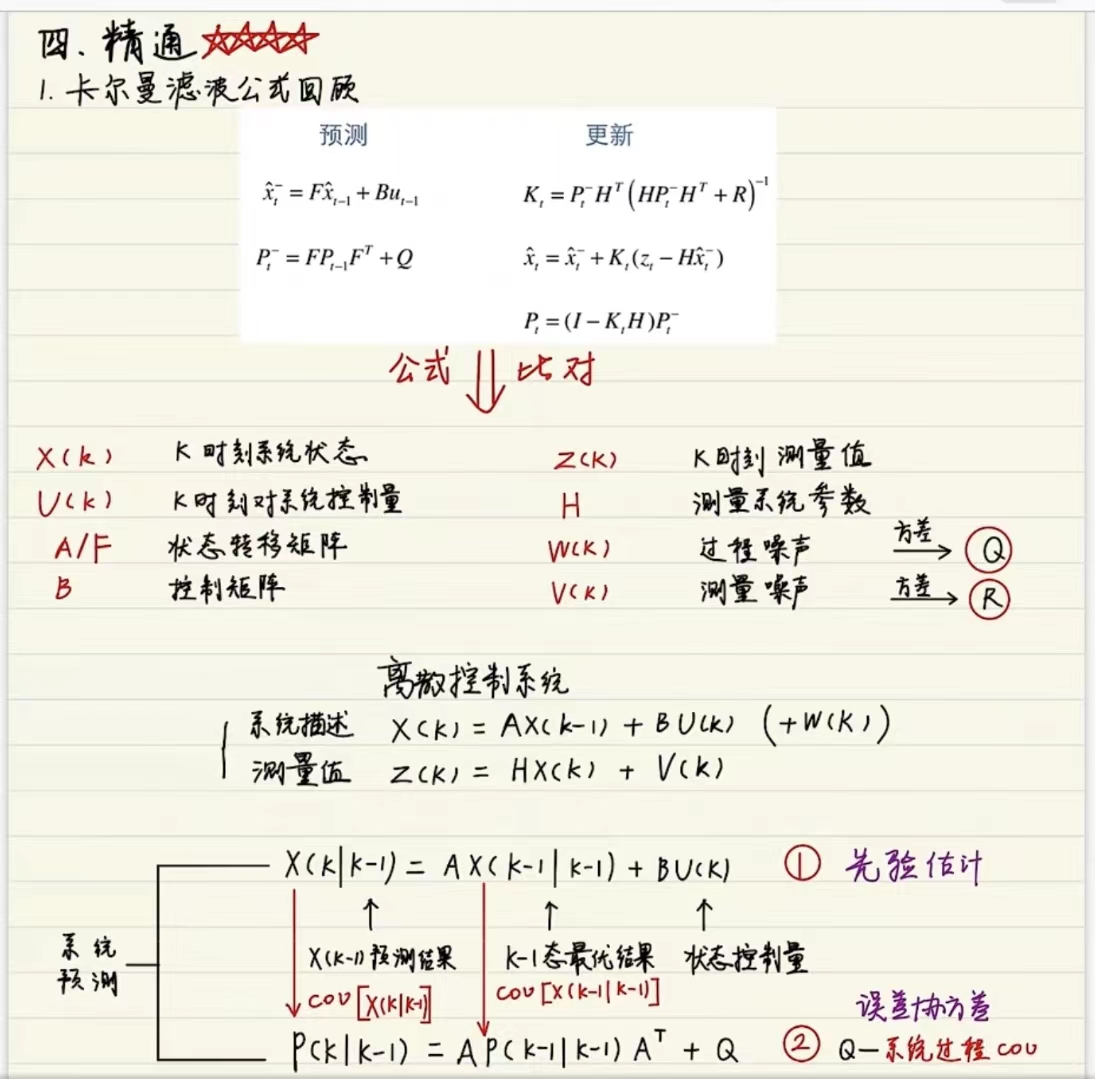 四. 精通 ☆☆☆☆
1. 卡尔曼滤波公式回顾
预测 更新
x̂ₜ⁻ = Fx̂ₜ₋₁ + Buₜ₋₁ Kₜ = Pₜ⁻Hᵀ(HPₜ⁻Hᵀ + R)⁻¹
Pₜ⁻ = FPₜ₋₁Fᵀ + Q x̂ₜ = x̂ₜ⁻ + Kₜ(zₜ − Hx̂ₜ⁻)
Pₜ = (I − KₜH)Pₜ⁻
公式 ⇓ 比对
X(k) K时刻系统状态 Z(K) K时刻测量值
U(k) K时刻对系统控制量 H 测量系统参数
A/F 状态转移矩阵 W(K) 过程噪声 方差→ Q
B 控制矩阵 V(K) 测量噪声 方差→ R
离散控制系统
系统描述 X(K) = AX(k-1) + BU(k) (+W(K))
测量值 Z(K) = HX(k) + V(k)
X(k|k-1) = AX(k-1|k-1) + BU(K) ① 先验估计
↑ ↑ ↑
系统预测 X(k-1)预测结果 K-1态最优结果 状态控制量
cov[X(k|k-1)] cov[X(k-1|k-1)] 误差协方差
P(k|k-1) = AP(k-1|k-1)Aᵀ + Q ② Q—系统过程cov